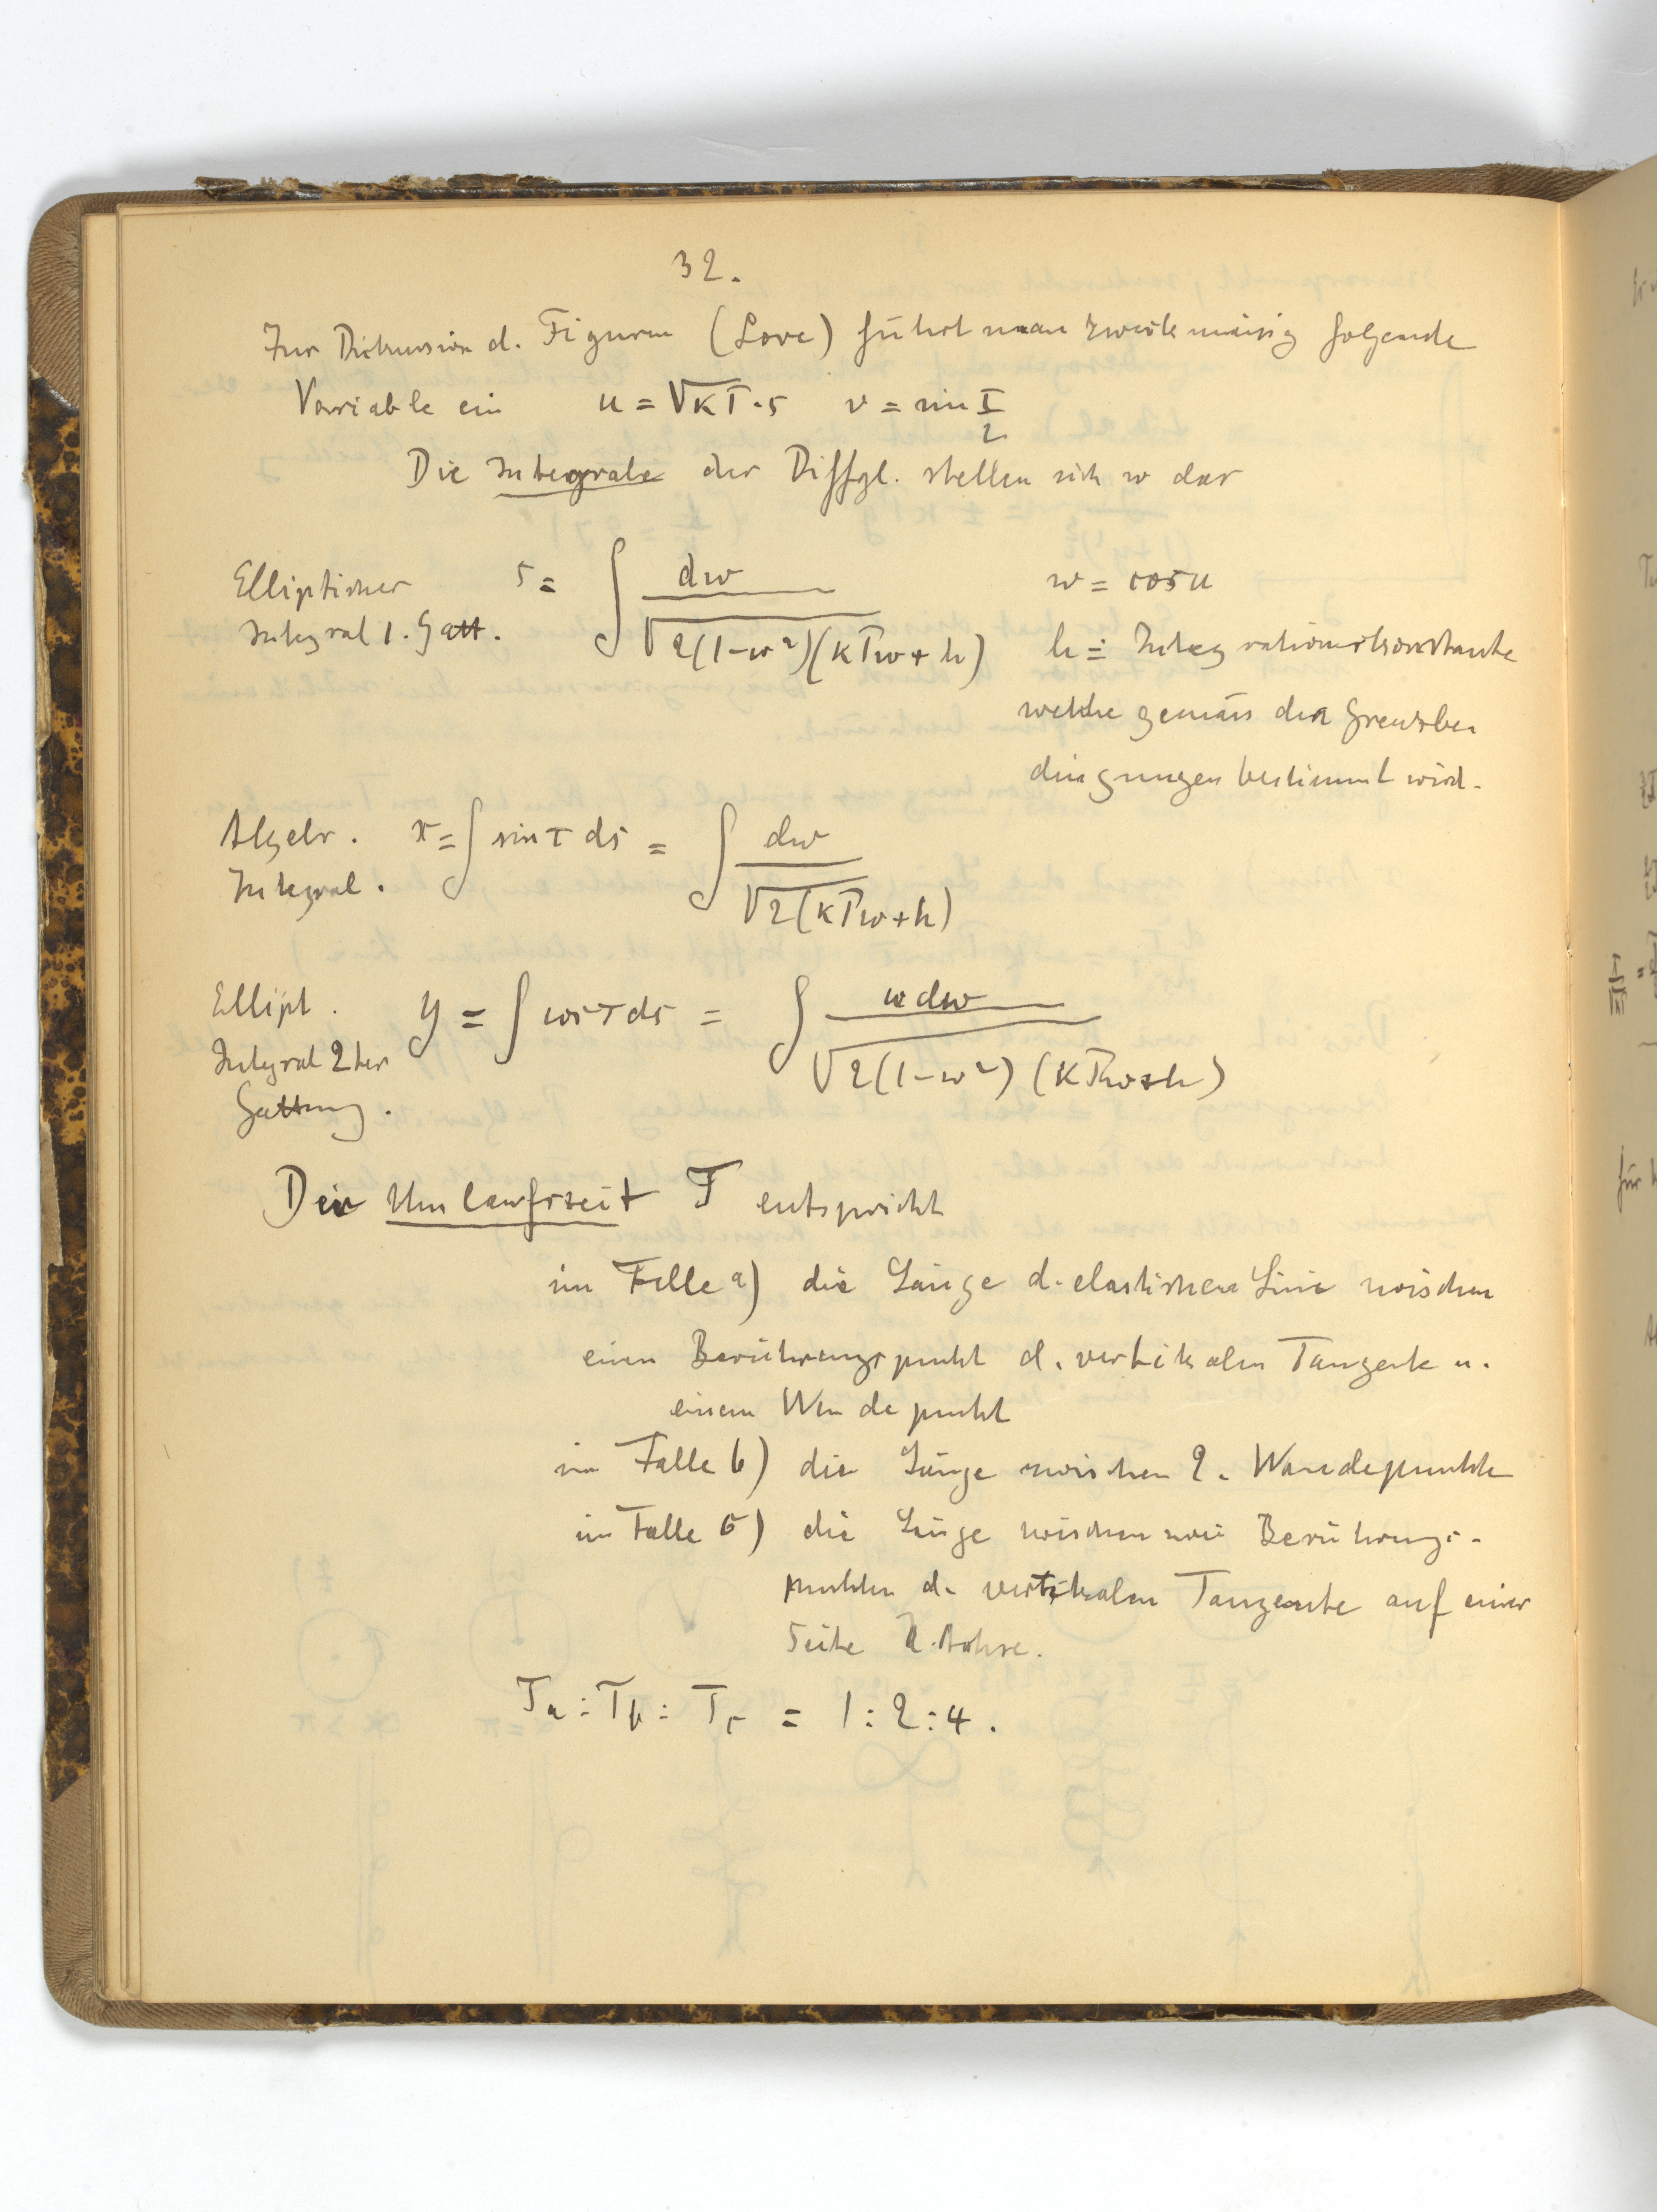 32.
Zur Diskussion d. Figuren (Love) führt man zweckmässig folgende
Variable ein u = √KT·s v = sin τ/2
Die Integrale der Diffgl. stellen sich so dar
Elliptischer Integral 1. Gatt. s = ∫ dw / √2(1-w²)(KTw+h) w = cos u
h = Integrationskonstante
welche gemäss den Grenzbe
dingungen bestimmt wird.
Algebr. Integral. x = ∫ sin τ ds = ∫ dw / √2(KTw+h)
Ellipt. Integral 2ter Gattung. y = ∫ cos τ ds = ∫ w dw / √2(1-w²)(KTw+h)
Der Umlaufszeit T entspricht
im Falle a) die Länge d. elastischen Linie zwischen
einem Berührungspunkt d. vertikalen Tangente u.
einem Wendepunkt
im Falle b) die Länge zwischen 2. Wendepunkte
im Falle c) die Länge zwischen zwei Berührungs-
punkten d. vertikalen Tangente auf einer
Seite d. Achse.
Ta : Tb : Tc = 1:2:4.